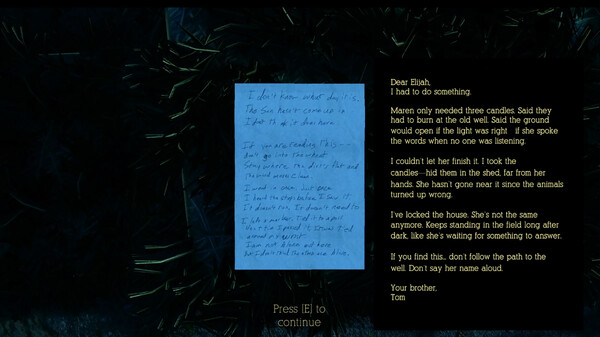 I don't know what day it is.
The sun hasn't come up in
If you are reading this --
don't go into the wheat
Stay where the dirt's flat and
I went in once, but even
It doesn't run. It doesn't need to
I am not alone out here
Dear Elijah,
I had to do something.
Maren only needed three candles. Said they
had to burn at the old well. Said the ground
would open if the light was right if she spoke
the words when no one was listening.
I couldn't let her finish it. I took the
candles—hid them in the shed, far from her
hands. She hasn't gone near it since the animals
turned up wrong.
I've locked the house. She's not the same
anymore. Keeps standing in the field long after
dark, like she's waiting for something to answer.
If you find this.. don't follow the path to the
well. Don't say her name aloud.
Your brother,
Tom
Press [E] to
continue